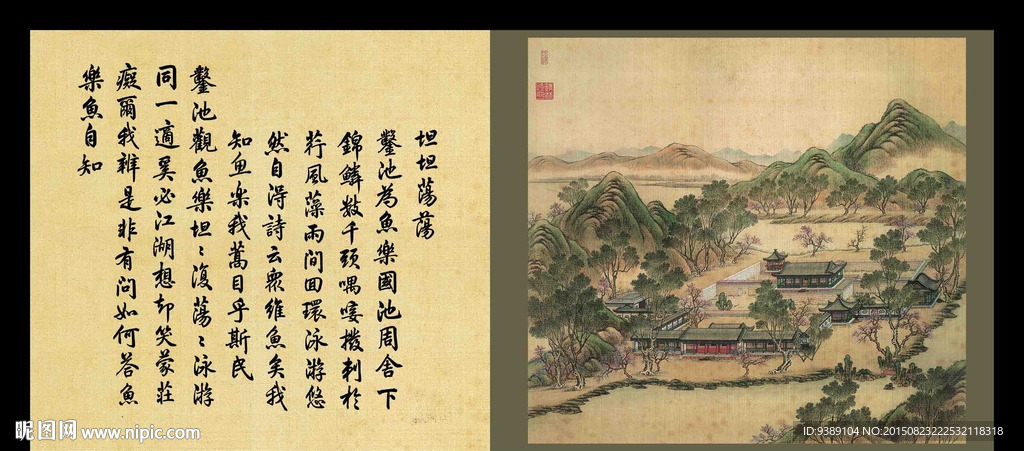 坦坦蕩蕩
鑿池為魚樂國池周舍下
錦鱗數千頭喁唼撥刺於
荇風藻雨間回環泳游悠
然自淂詩云衆維魚矣我
知魚樂我蒿目乎斯民
鑿池觀魚樂坦〻復蕩〻泳游
同一適奚必江湖想却笑蒙莊
癡爾我辨是非有問如何答魚
樂魚自知
昵图网 www.nipic.com
ID:9389104 NO:20150823222532118318